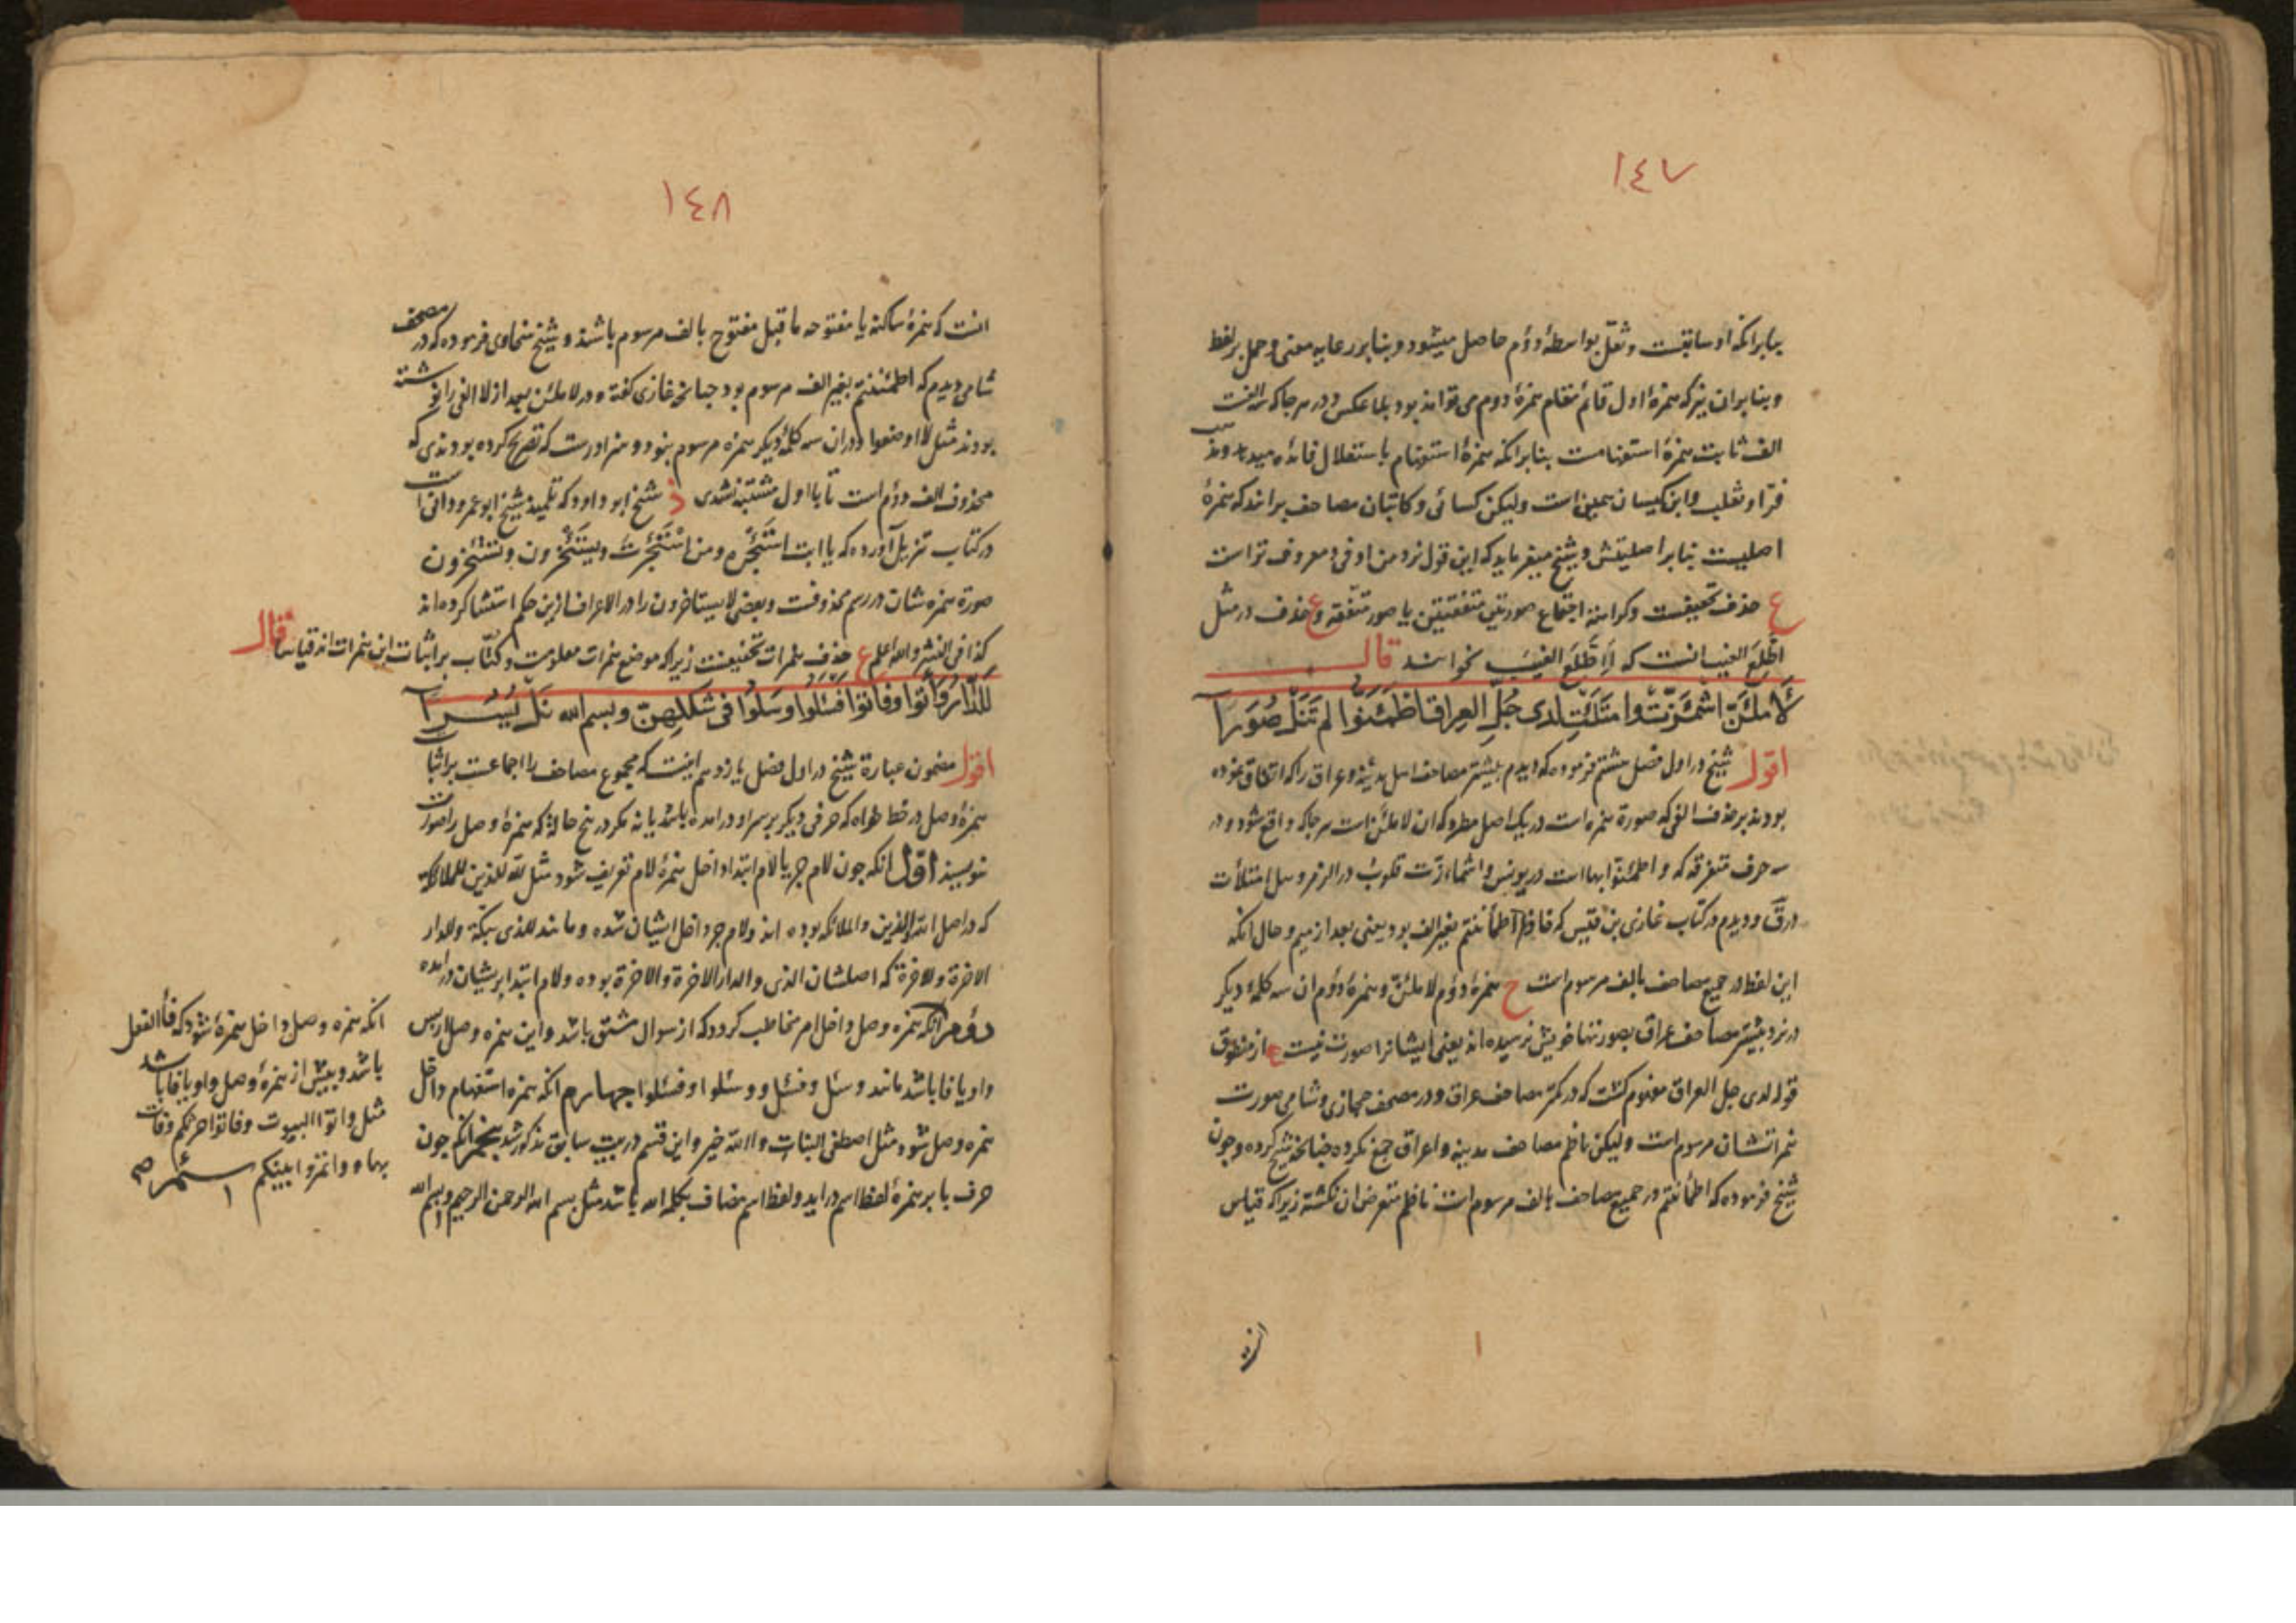 ١٤٧
بنابر انکه او سابقست و ثقل بواسطهٔ دوم حاصل میشود و بنابر رعایه معنی و حمل بر لفظ
و بنابران نیز که همزهٔ اول قائم مقام همزهٔ دوم می تواند بود بلا عکس و در هر جا که سه الفست
الف ثابت همزهٔ استفهامست بنابر انکه همزهٔ استفهام باستقلال فائده میدهد و نزد
فرّا و ثعلب و ابن کیسان همین است ولیکن کسائی و کاتبان مصاحف برانند که همزهٔ
اصلیست بنابر اصلیتش و شیخ میفرماید که این قول نزد من اوفی و معروف تر است
ع حذف تخفیفست و کراهة اجتماع صورتین متفقتین یا صور متفقه و ع حذف در مثل
اطَّلَعَ الغیب انست که أَاَطَّلَعَ الغیبَ نخوانند قال
لَأَملَئَنَّ اشْمَئَزَّتْ وامتَلَئَتِ لدی جُلِّ العِراق اطْمَئَنوا لم تَنَلْ صُوَرَا
اقول شیخ در اول فصل هشتم فرموده که دیدم بیشتر مصاحف اهل مدینه و عراق را که اتفاق نموده
بودند بر حذف الفی که صورة همزه است در یک اصل مطرد که ان لاملئن است هر جا که واقع شود و در
سه حرف متفرقه که و اطمئنوا بها است در یونس و اشمازت قلوب در الزمر و هل امتلأت
در ق و دیدم در کتاب غازی بن قیس که فاذا اطمأننتم بغیر الف بود یعنی بعد از میم و حال انکه
این لفظ در جمیع مصاحف بالف مرسوم است ح همزهٔ دوم لاملئن و همزهٔ دوم ان سه کلمهٔ دیگر
در نزد بیشتر مصاحف عراق بصورتها خویش نرسیده اند یعنی ایشانرا صورت نیست ع از منطوق
قوله لدی جل العراق مفهوم گشت که در کمتر مصاحف عراق و در مصحف حجازی و شامی صورت
همزاتشان مرسوم است ولیکن ناظم مصاحف مدینه و اعراق جمع نکرده چنانچه شیخ کرده و چون
شیخ فرموده که اطمأننتم در جمیع مصاحف بالف مرسوم است ناظم متعرض ان نگشته زیرا که قیاس
١٤٨
انست که همزهٔ ساکنه یا مفتوحه ما قبل مفتوح بالف مرسوم باشند و شیخ سخاوی فرموده که در مصحف
شامی دیدم که اطمئننتم بغیر الف مرسوم بود چنانچه غازی گفته و در لاملئن بعد از لا الفی را نوشته
بودند مثل لا اوضعوا و دران سه کلمهٔ دیگر همزه مرسوم نبود و سزاورست که تصریح کرده بودندی که
محذوف الف دوم است تا با اول مشتبه نشدی شیخ ابو داود که تلمیذ شیخ ابو عمرو دانی است
در کتاب تنزیل آورده که یا ابت استَئجره و من استَئجرتَ و یستَئخرون و تستَئخرون
صورة همزه شان در رسم محذوفست و بعضی لا یستاخرون را در الاعراف ازین حکم استثنا کرده اند
کذا فی النشر و الله اعلم ع حذف همزات تخفیفست زیرا که موضع همزات معلومست و کتّاب بر اثبات این همزات اند قیاسا قال
لَلدَّارُ وَأْتوا وفاْتوا فَسْئَلُوا وسَلُوا فی شَکلِهِنّ وبسم الله نَلْ یُسُرا
اقول مضمون عبارة شیخ در اول فصل یازدهم اینست که مجموع مصاحف را اجماعست بر اثبات
همزهٔ وصل در خط خواه که حرفی دیگر بر سر او در امده باشد یا نه مگر در پنج حالة که همزهٔ وصل را صورت
ننویسند اوّل انکه چون لام جر یا لام ابتدا داخل همزهٔ لام تعریف شود مثل لله للذین للملائکة
که در اصل الله الذین و الملائکه بوده اند و لام جر داخل ایشان شده و مانند للذی ببکة و للدار
الاخرة و للاخرة که اصلشان الذی و الدار الاخرة و الاخرة بوده و لام ابتدا بریشان درامده
دوّم انکه همزه وصل داخل امر مخاطب گردد که از سوال مشتق باشد و این همزه وصل از پس
واو یا فا باشد مانند وسئل و فسئل و وسئلوا و فسئلوا چهارم انکه همزه استفهام داخل
همزه وصل شود مثل اصطفی البنات و االله خیر و این قسم در بیت سابق مذکور شد پنجم انکه چون
حرف با بر همزهٔ لفظ اسم دراید و لفظ اسم مضاف بکلمه الله باشد مثل بسم الله الرحمن الرحیم و بسم الله
انکه همزه وصل داخل همزهٔ شود که فاء الفعل
باشد و پیش از همزهٔ وصل واو یا فا باشد
مثل و اتوا البیوت و فاتوا حرثکم و فات
بها و و اتمروا بینکم